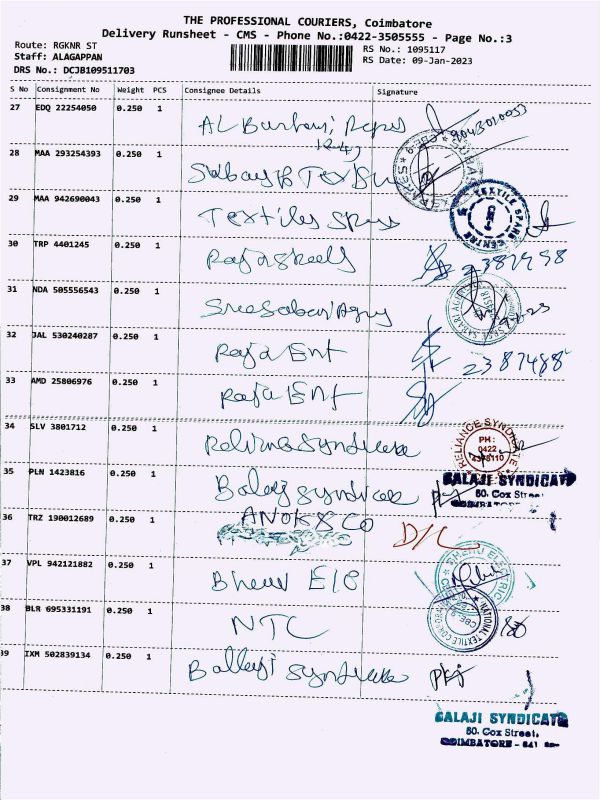 THE PROFESSIONAL COURIERS, Coimbatore
Delivery Runsheet - CMS - Phone No.:0422-3505555 - Page No.:3
Route: RGKNR ST
RS No.: 1095117
Staff: ALAGAPPAN
RS Date: 09-Jan-2023
DRS No.: DCJB109511703
S No Consignment No Weight PCS Consignee Details Signature
27 EDQ 22254050 0.250 1
9043010053
28 MAA 293254393 0.250 1
29 MAA 942690043 0.250 1 Textiles Spares
TEXTILE SPARE CENTRE
30 TRP 4401245 0.250 1
31 NDA 505556543 0.250 1
32 JAL 530240287 0.250 1 Raja Ent 2387488
33 AMD 25806976 0.250 1 Raja Ent
34 SLV 3801712 0.250 1 Reliance Syndicate
RELIANCE SYNDICATE
PH:
0422
35 PLN 1423816 0.250 1 Balaji Syndicate
BALAJI SYNDICATE
50. Cox Street
COIMBATORE
36 TRZ 190012689 0.250 1 ANOK & CO D/L
37 VPL 942121882 0.250 1
38 BLR 695331191 0.250 1 NTC
NATIONAL TEXTILE CORPORATION
39 IXM 502839134 0.250 1 Ballaji Syndicate pkj
BALAJI SYNDICATE
50. Cox Street,
COIMBATORE - 641